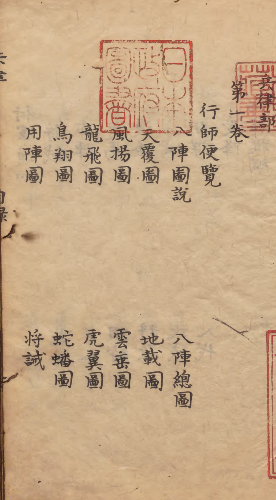 兵律部
第一卷
行師便覽
八陣圖說
八陣總圖
天覆圖
地載圖
風揚圖
雲垂圖
龍飛圖
虎翼圖
鳥翔圖
蛇蟠圖
用陣圖
將誡
日本
政府
圖書